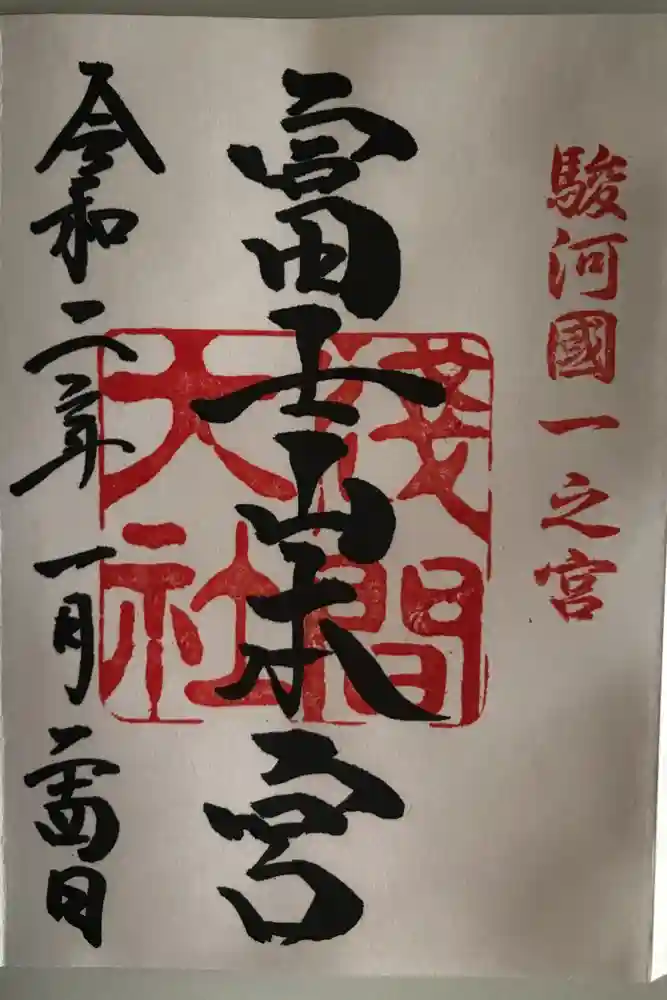 駿河國一之宮
富士山本宮
淺間大社
令和二年一月二十四日